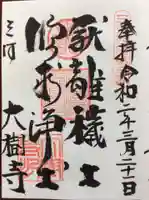 奉拝 令和二年三月二十一日
厭離穢土
欣求浄土
三河 大樹寺